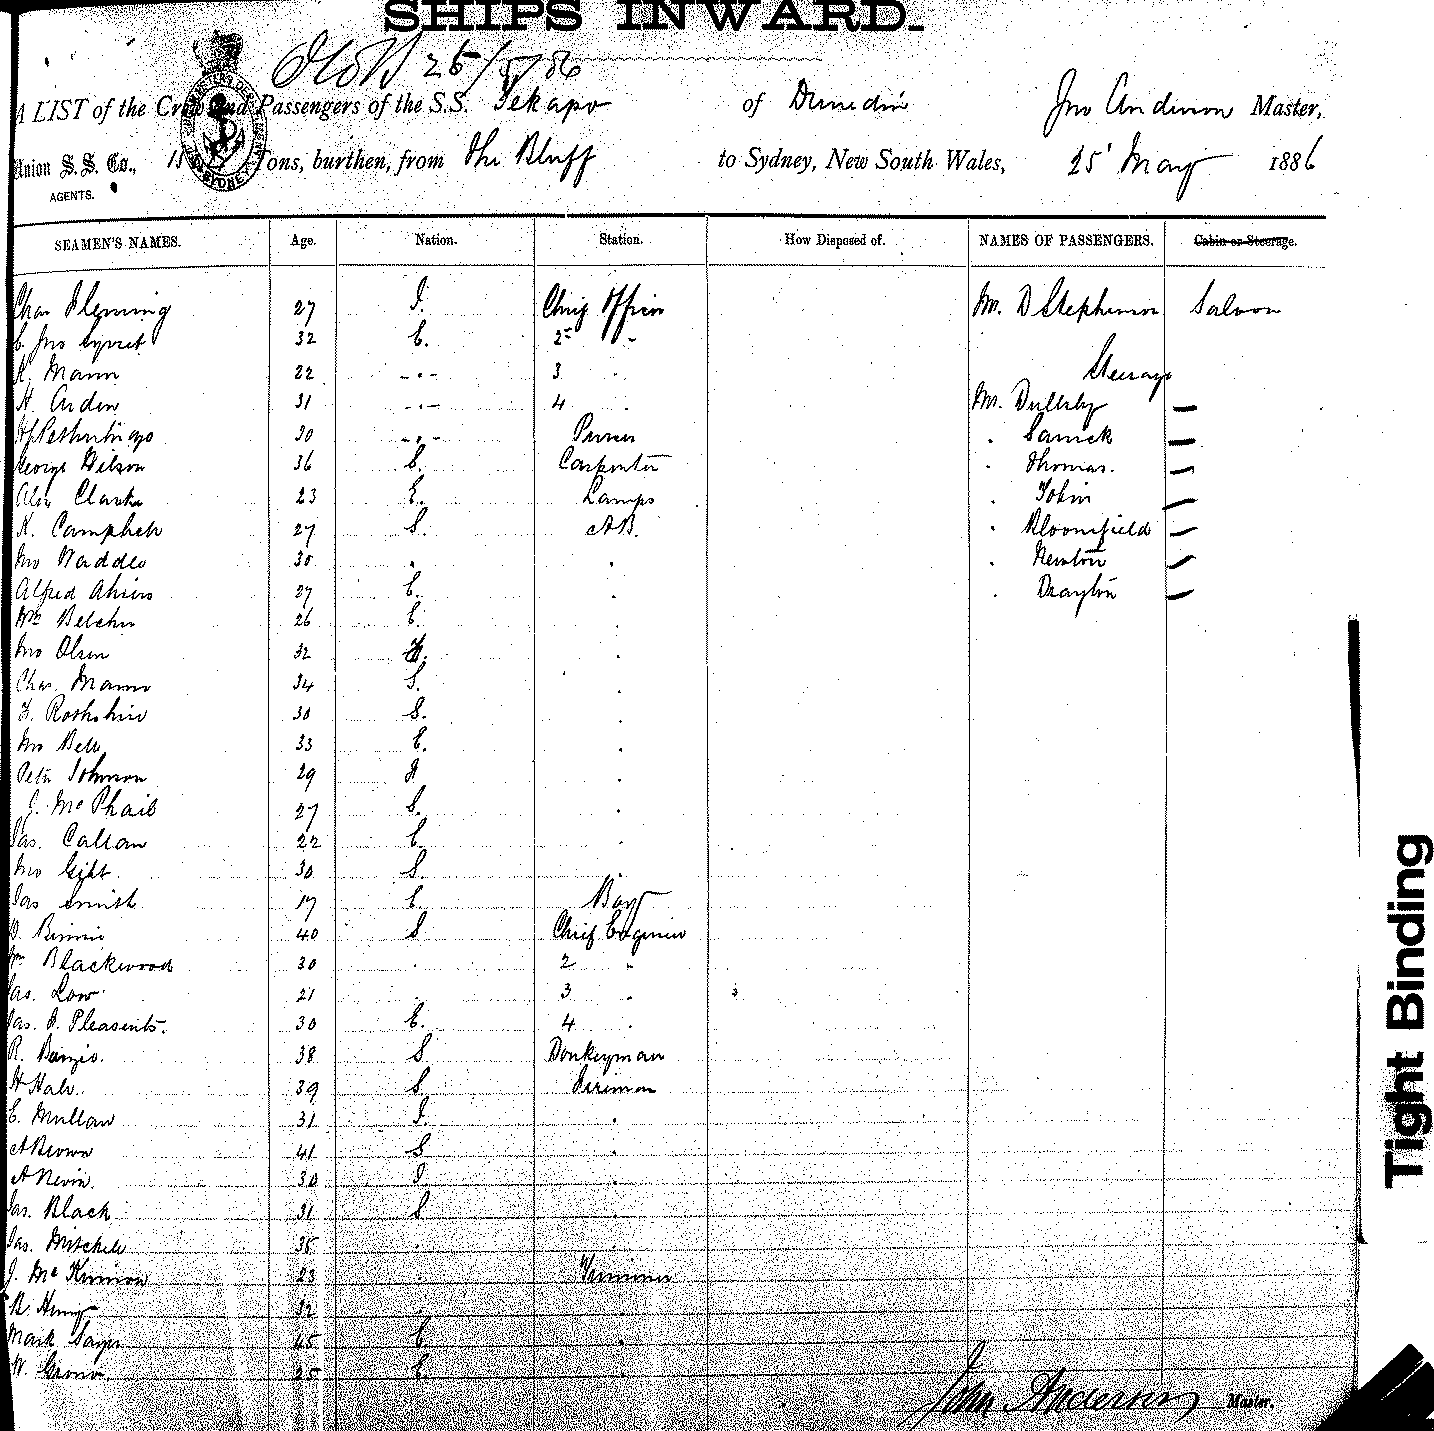 SHIPS INWARD.
25/5/86
A LIST of the Crew and Passengers of the S.S. Tekapo of Dunedin Jno Anderson Master,
Union S. S. Co., Tons, burthen, from The Bluff to Sydney, New South Wales, 25 May 1886
AGENTS.
SYDNEY
SEAMEN'S NAMES. Age. Nation. Station. How Disposed of. NAMES OF PASSENGERS. Cabin or Steerage.
Chas Fleming 27 I. Chief Officer Mr. D Stephenson Saloon
32 E. 2nd "
K. Mann 22 -"- 3 " Steerage
H. Arden 31 -"- 4 " Mr. —
30 -"- Purser " —
George Wilson 36 S. Carpenter " Thomas. —
Alex Clarke 23 E. Lamps " Tobin —
K. Campbell 27 S. AB. " Bloomfield —
Jno Waddle 30 " " " Newton —
Alfred Ahiers 27 E. " " Drayton —
Wm Belcher 26 E. "
Jno Olsen 32 "
Chas. Mann 34 S. "
30 S. "
Jno Bell 33 E. "
Peter Johnson 29 "
J. McPhail 27 E. "
Jas. Callan 22 E. "
Jno Gibb 30 S. "
Jas Smith 17 E. Boy
D. Binnie 40 S Chief Engineer
Wm Blackwood 30 " 2 "
Jas. Low 21 " 3 "
Jas. P. Pleasents. 30 E. 4 "
R. 38 S Donkeyman
H Hale 39 S. Fireman
E. Mullan 31 I. "
A Brown 41 S "
A Nevin 30 I "
Jas. Black 31 S "
Jas. Mitchell 35 " "
J. McKinnon 23 " Trimmer
R. Henry 32 "
Mark 45 E. "
W. 25 E. "
John Anderson Master.
Tight Binding